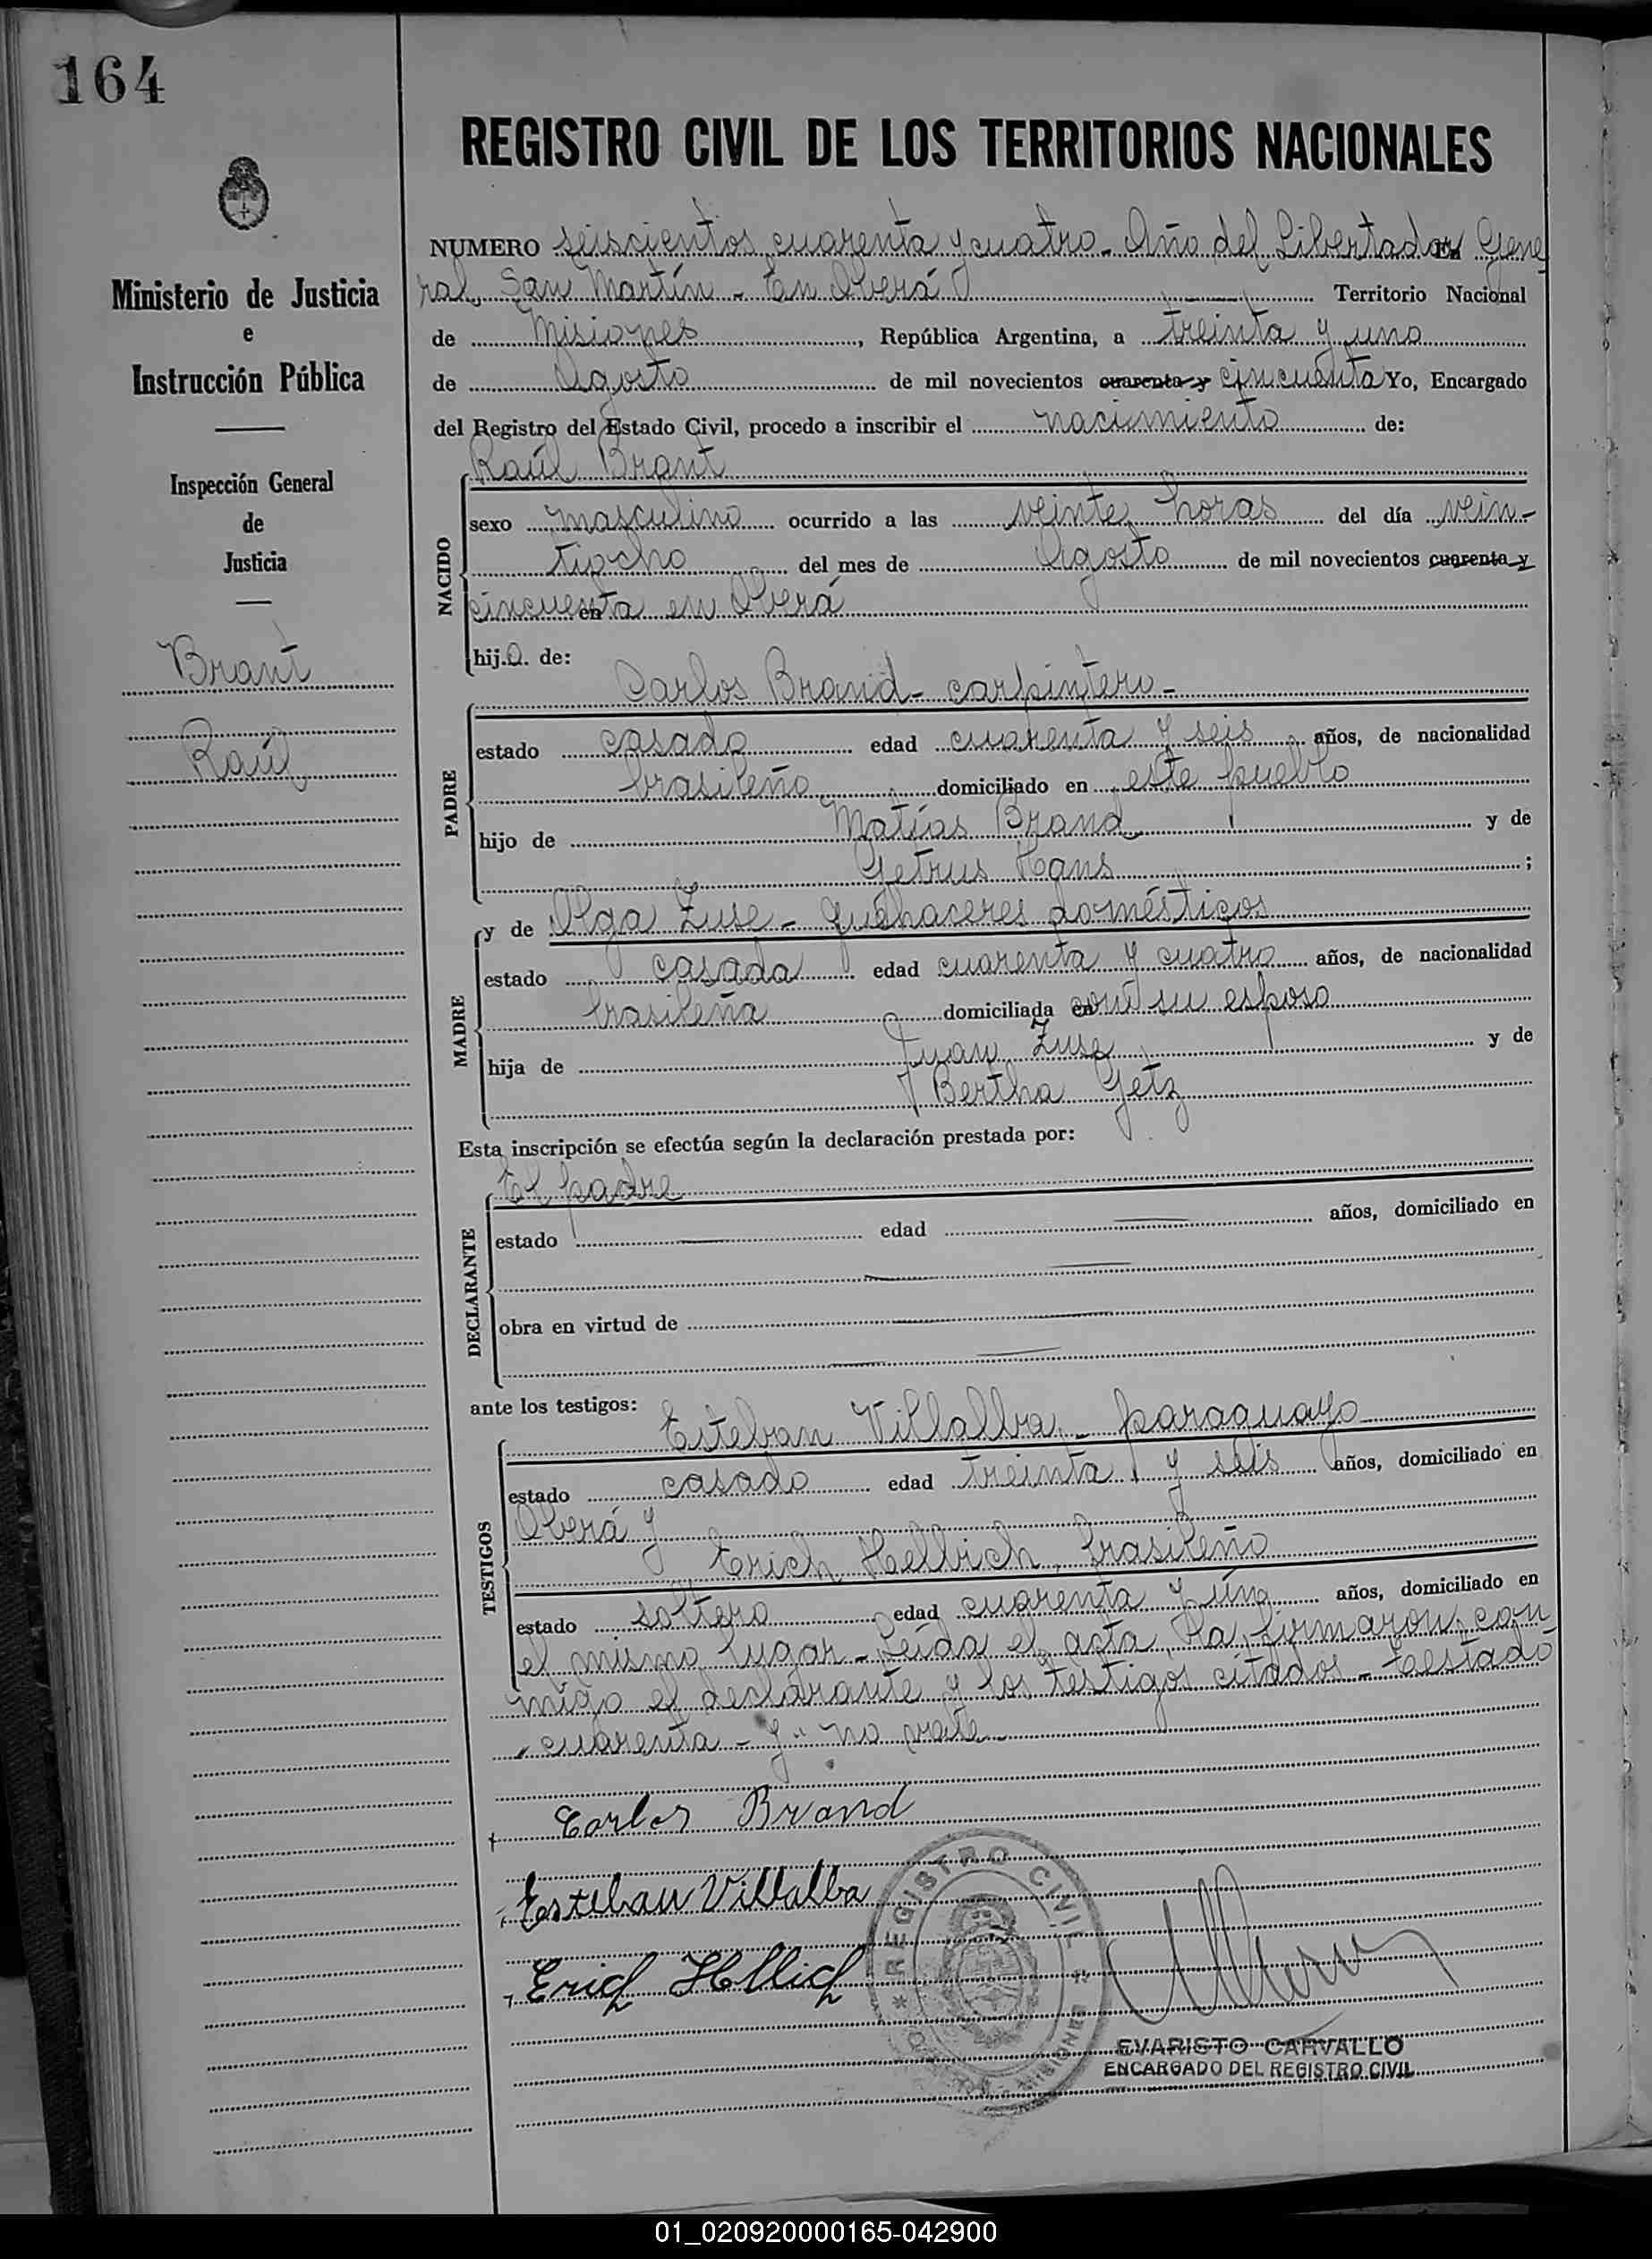 164
Ministerio de Justicia
e
Instrucción Pública
Inspección General
de
Justicia
Brant
Raúl
REGISTRO CIVIL DE LOS TERRITORIOS NACIONALES
NUMERO seiscientos cuarenta y cuatro - Año del Libertador En Gene
ral San Martín - En Oberá Territorio Nacional
de Misiones, República Argentina, a treinta y uno
de Agosto de mil novecientos cuarenta y cincuenta Yo, Encargado
del Registro del Estado Civil, procedo a inscribir el nacimiento de:
Raúl Brant
NACIDO
sexo masculino ocurrido a las veinte horas del día vein-
tiocho del mes de Agosto de mil novecientos cuarenta y
cincuenta en en Oberá
hijo de:
Carlos Brand - carpintero -
PADRE
estado casado edad cuarenta y seis años, de nacionalidad
brasileño domiciliado en este pueblo
hijo de Matías Brand y de
Getrus Hans ;
y de Olga Zuse - quehaceres domésticos
MADRE
estado casada edad cuarenta y cuatro años, de nacionalidad
brasileña domiciliada en con su esposo
hija de Juan Zuse y de
Bertha Getz
Esta inscripción se efectúa según la declaración prestada por:
El padre
DECLARANTE
estado edad años, domiciliado en
obra en virtud de
ante los testigos:
Esteban Villalba - paraguayo
TESTIGOS
estado casado edad treinta y seis años, domiciliado en
Oberá y
Erich Hellich, brasileño
estado soltero edad cuarenta y uno años, domiciliado en
el mismo lugar - Leída el acta, la firmaron con
migo el declarante y los testigos citados - Testado
"cuarenta - y" no vale -
Carlos Brand
Esteban Villalba
Erich Hellich
REGISTRO CIVIL
MISIONES
EVARISTO CARVALLO
ENCARGADO DEL REGISTRO CIVIL
01_020920000165-042900